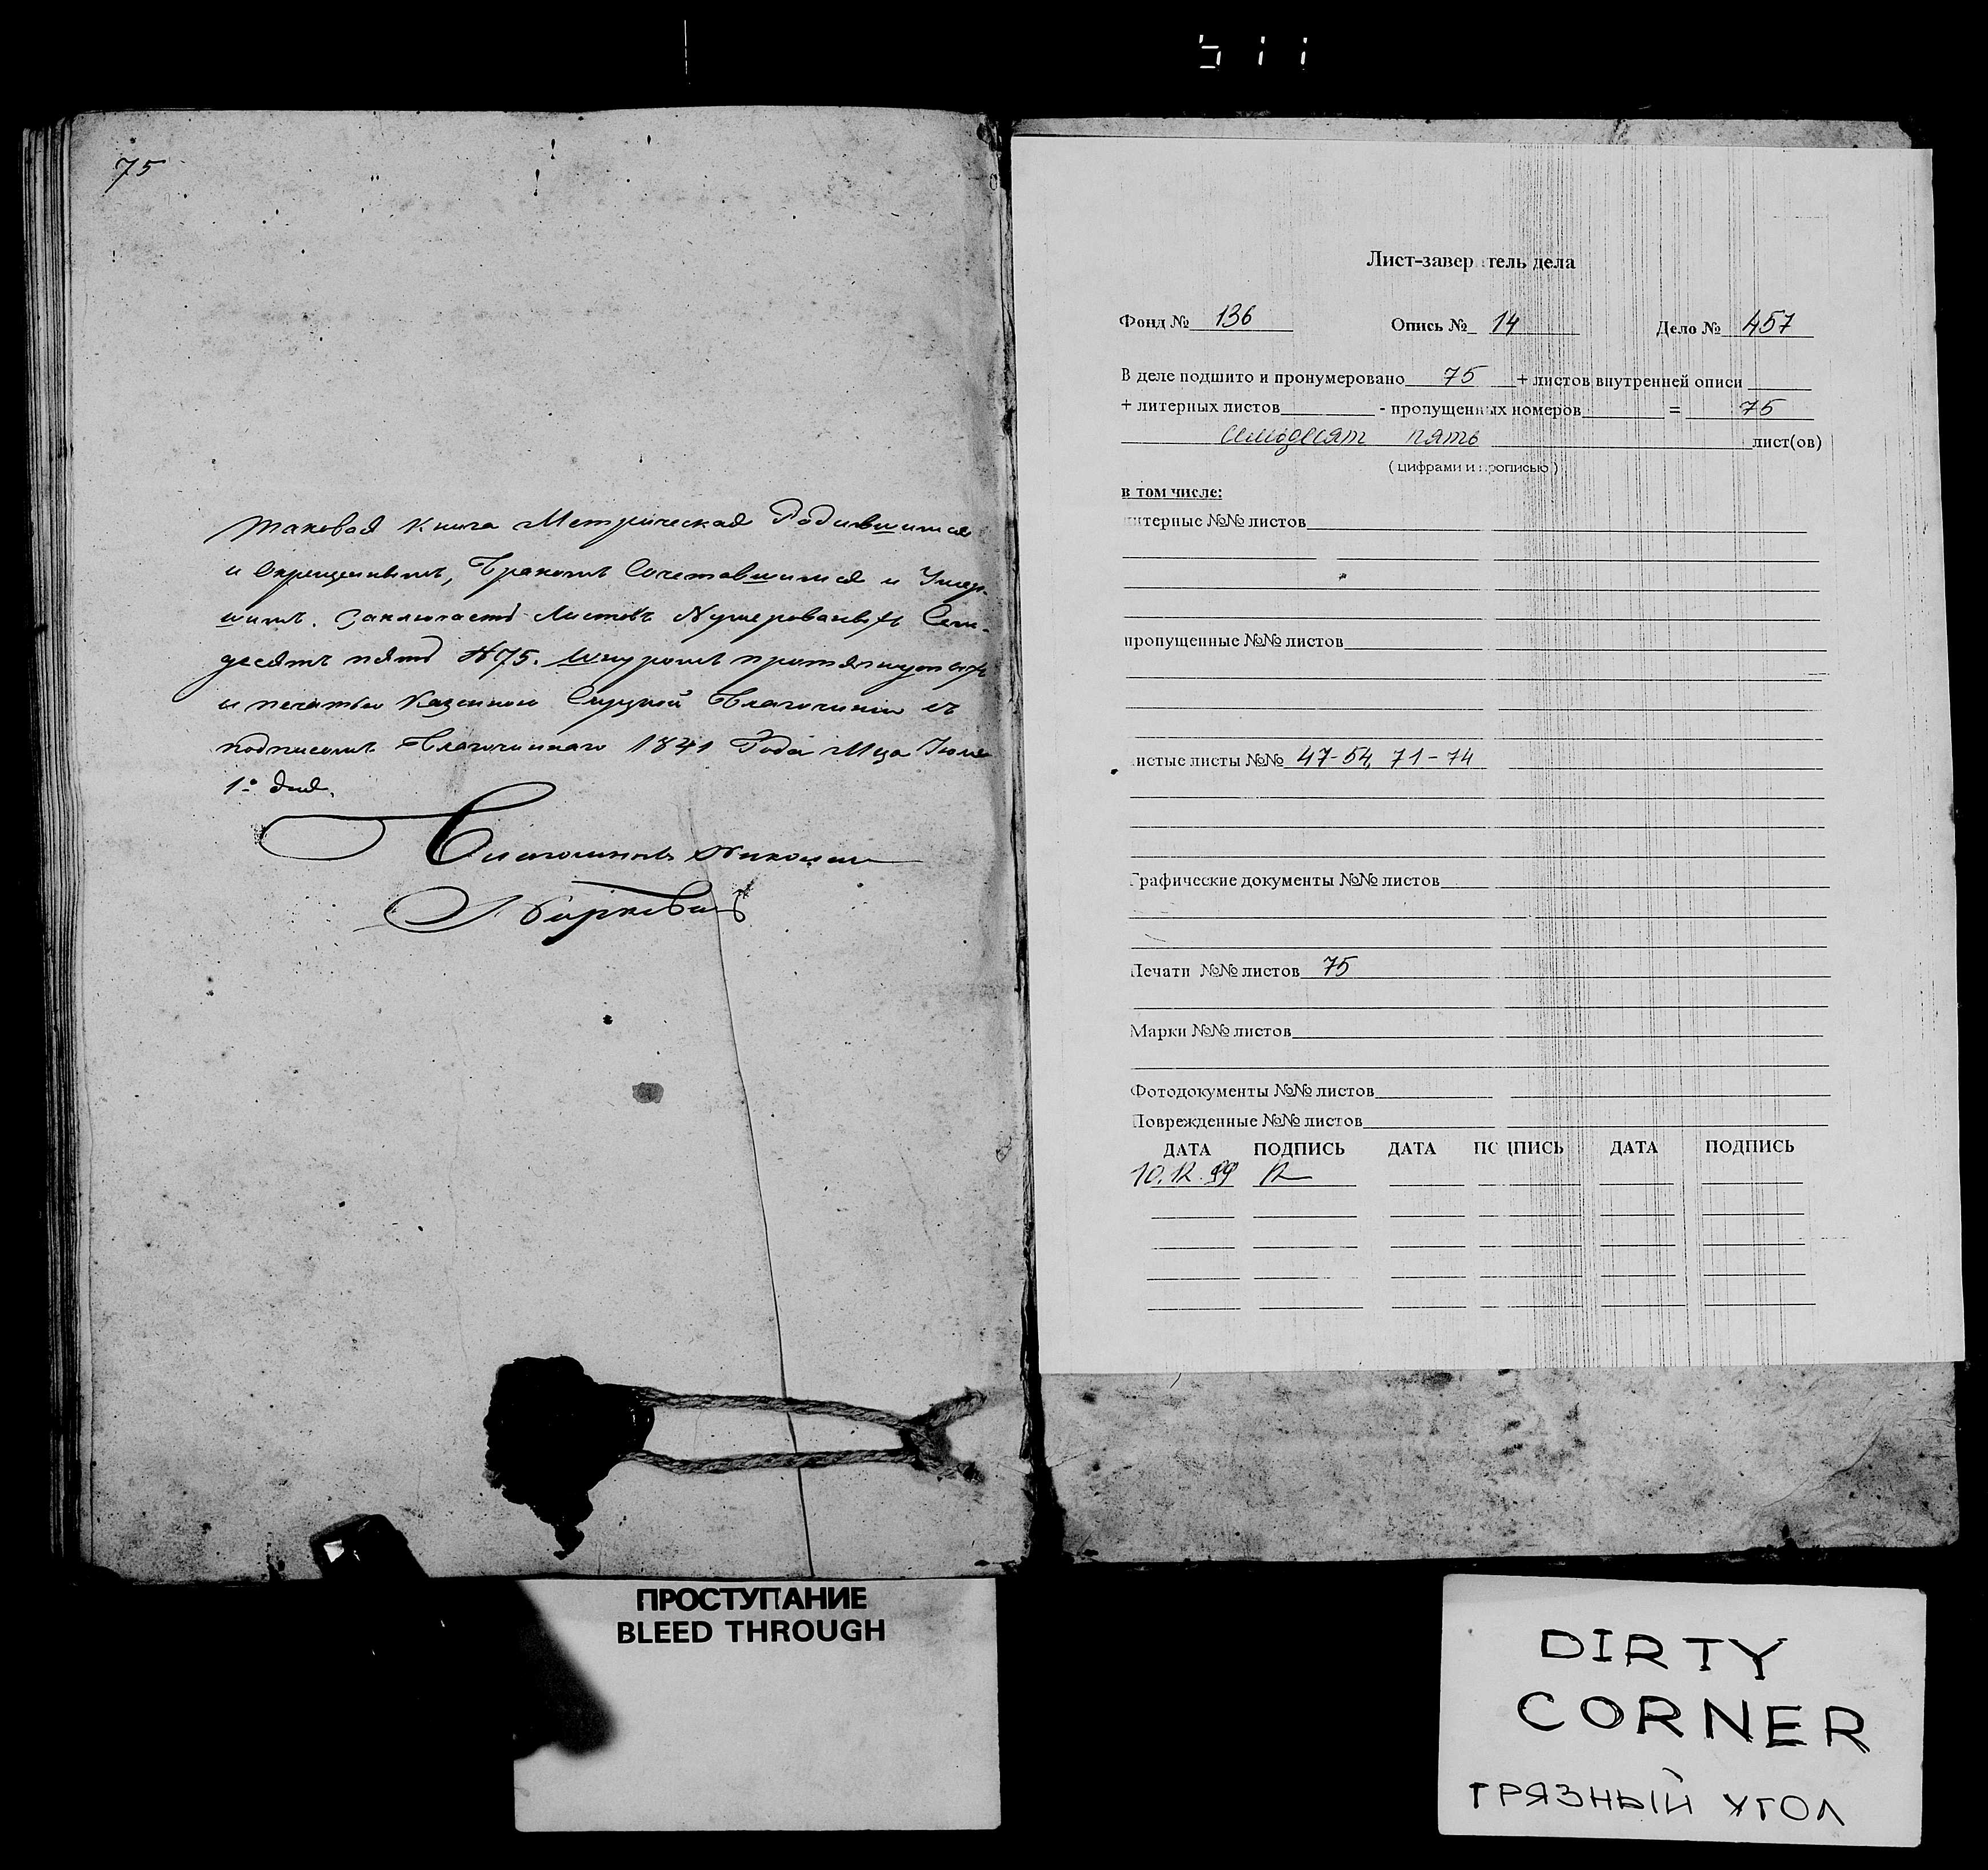 511
75
Таковая Книга Метрическая Родившихся
и Окрещенныхъ, Бракомъ Сочетавшихся и Умер-
шихъ. Заключаетъ Листовъ Нумерованныхъ Сем-
десятъ пять №75. Шнуромъ протянутыхъ
и печатью Казенною Благочинія съ
подписомъ Благочиннаго 1841 Года Мца Іюля
1го дня.
Благочинный Николай
Лист-заверитель дела
Фонд № 136 Опись № 14 Дело № 457
В деле подшито и пронумеровано 75 + листов внутренней описи
+ литерных листов - пропущенных номеров = 75
семьдесят пять лист(ов)
( цифрами и прописью )
в том числе:
литерные №№ листов
пропущенные №№ листов
чистые листы №№ 47-54, 71-74
Графические документы №№ листов
Печати №№ листов 75
Марки №№ листов
Фотодокументы №№ листов
Поврежденные №№ листов
ДАТА ПОДПИСЬ ДАТА ПОДПИСЬ ДАТА ПОДПИСЬ
10.12.99
ПРОСТУПАНИЕ
BLEED THROUGH
DIRTY
CORNER
ГРЯЗНЫЙ УГОЛ